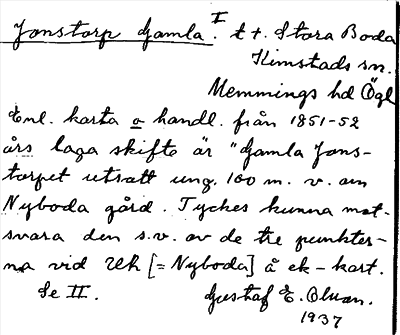 Jonstorp Gamla I. t t. Stora Boda
Kimstads sn.
Memmings hd Ögl
Enl. karta o handl. från 1851-52
års laga skifte är "Gamla Jons-
torpet utsatt ung. 100 m. v. om
Nyboda gård. Tyckes kunna mot-
svara den s.v. av de tre punkter-
na vid Uh [= Nyboda] å ek-kart.
Se II. Gustaf E. Olsson.
1937